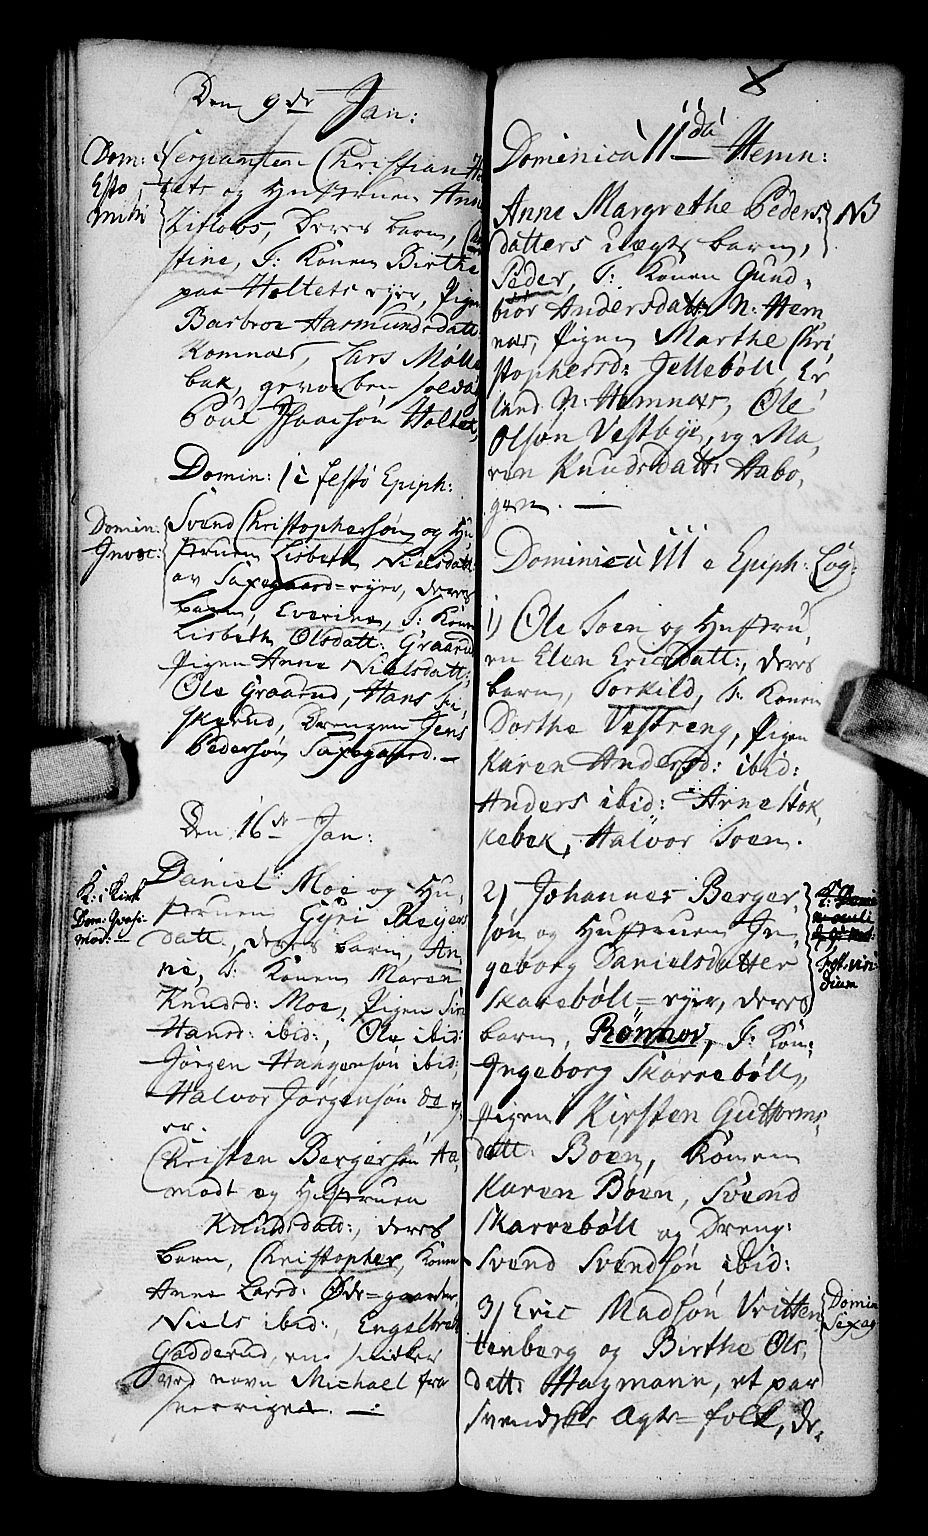 Den 9de Jan:
Dom:
Esto
mihi
Sergianten Christian
og Hustruen Anne
Zitlobs, Deres barn, Chri
stine, F: Konen Birthe
paa Holtets eyer, Pigen
Barbroe Aasmundsdatt:
Komnæs, Lars Mølle
bak, gevorben Soldat
Poul Isaachsøn Holtet,
Domin: 1 è festo Epiph:
Domin:
Invoc:
Svend Christophersøn og Hu
struen Lisbeth Nielsdatt:
av Saxegaard=eyer, deres
barn, Everine, F: Konen
Lisbeth Olsdatt: Graarud
Pigen Anne Nielsdatt:,
Ole Graarud, Hans
skerud, Drengen Jens
Pedersøn Saxegaard. —
Den 16de Jan:
K: i Kirk
Dom: Qvasi-
mod: —
Daniel Moe og Hu
struen Gyri Reyers
datt:, deres barn, An
ne, F: Konen Maren
Knudsd: Moe, Pigen Siri
Hansd: ibid:, Ole ibid:
Jørgen Haagensøn ibid:
Halvor Jørgensøn do ey
er.
Christen Bergersøn Aa
modt og Hustruen
Knudsdatt:, deres
barn, Christopher, Konen
Anne Larsd: Øde=gaarden,
Niels ibid:, Engelbret
Gadderud, en
ved navn Michael fra
Sverrige. —:
Dominica II da Hemn:
Anne Margrethe Peders
datters uægte barn,
Peder, F: Konen Gund-
biør Andersdatt: N: Hem
næs, Pigen Marthe Chri
stophersd: Jellebøll, Er
land N: Hemnæs, Ole
Olsøn Vestbye, og Ma,
ren Knudsdatt: Habo,
gen. —
NB
Dominica III e Epiph: Løg:
1) Ole Soen og Hustru,
en Elen Ericsdatt:, deres
barn, Torkild, F: Konen
Dorthe Vestreng, Pigen
Karen Andersd: ibid:,
Anders ibid: Arne Hok,
kebek, Halvor Soen.
2) Johannes Berger
søn og Hustruen In,
geborg Danielsdatter
Skarrebøll=eyer, deres
barn, Rønnov, F: Kon:
Ingeborg Skarrebøll,
Pigen Kirsten Guttorms-
datt: Boen, Konen
Karen Boen, Svend
Skarrebøll og Dreng:
Svend Svendsøn ibid:
Fest. viri
dium
3) Eric Madsøn Vritten
tenberg og Birthe Ols,
datt: Hagmann, et par
Svendske Ægte=folk, de,
Domin
Sexag